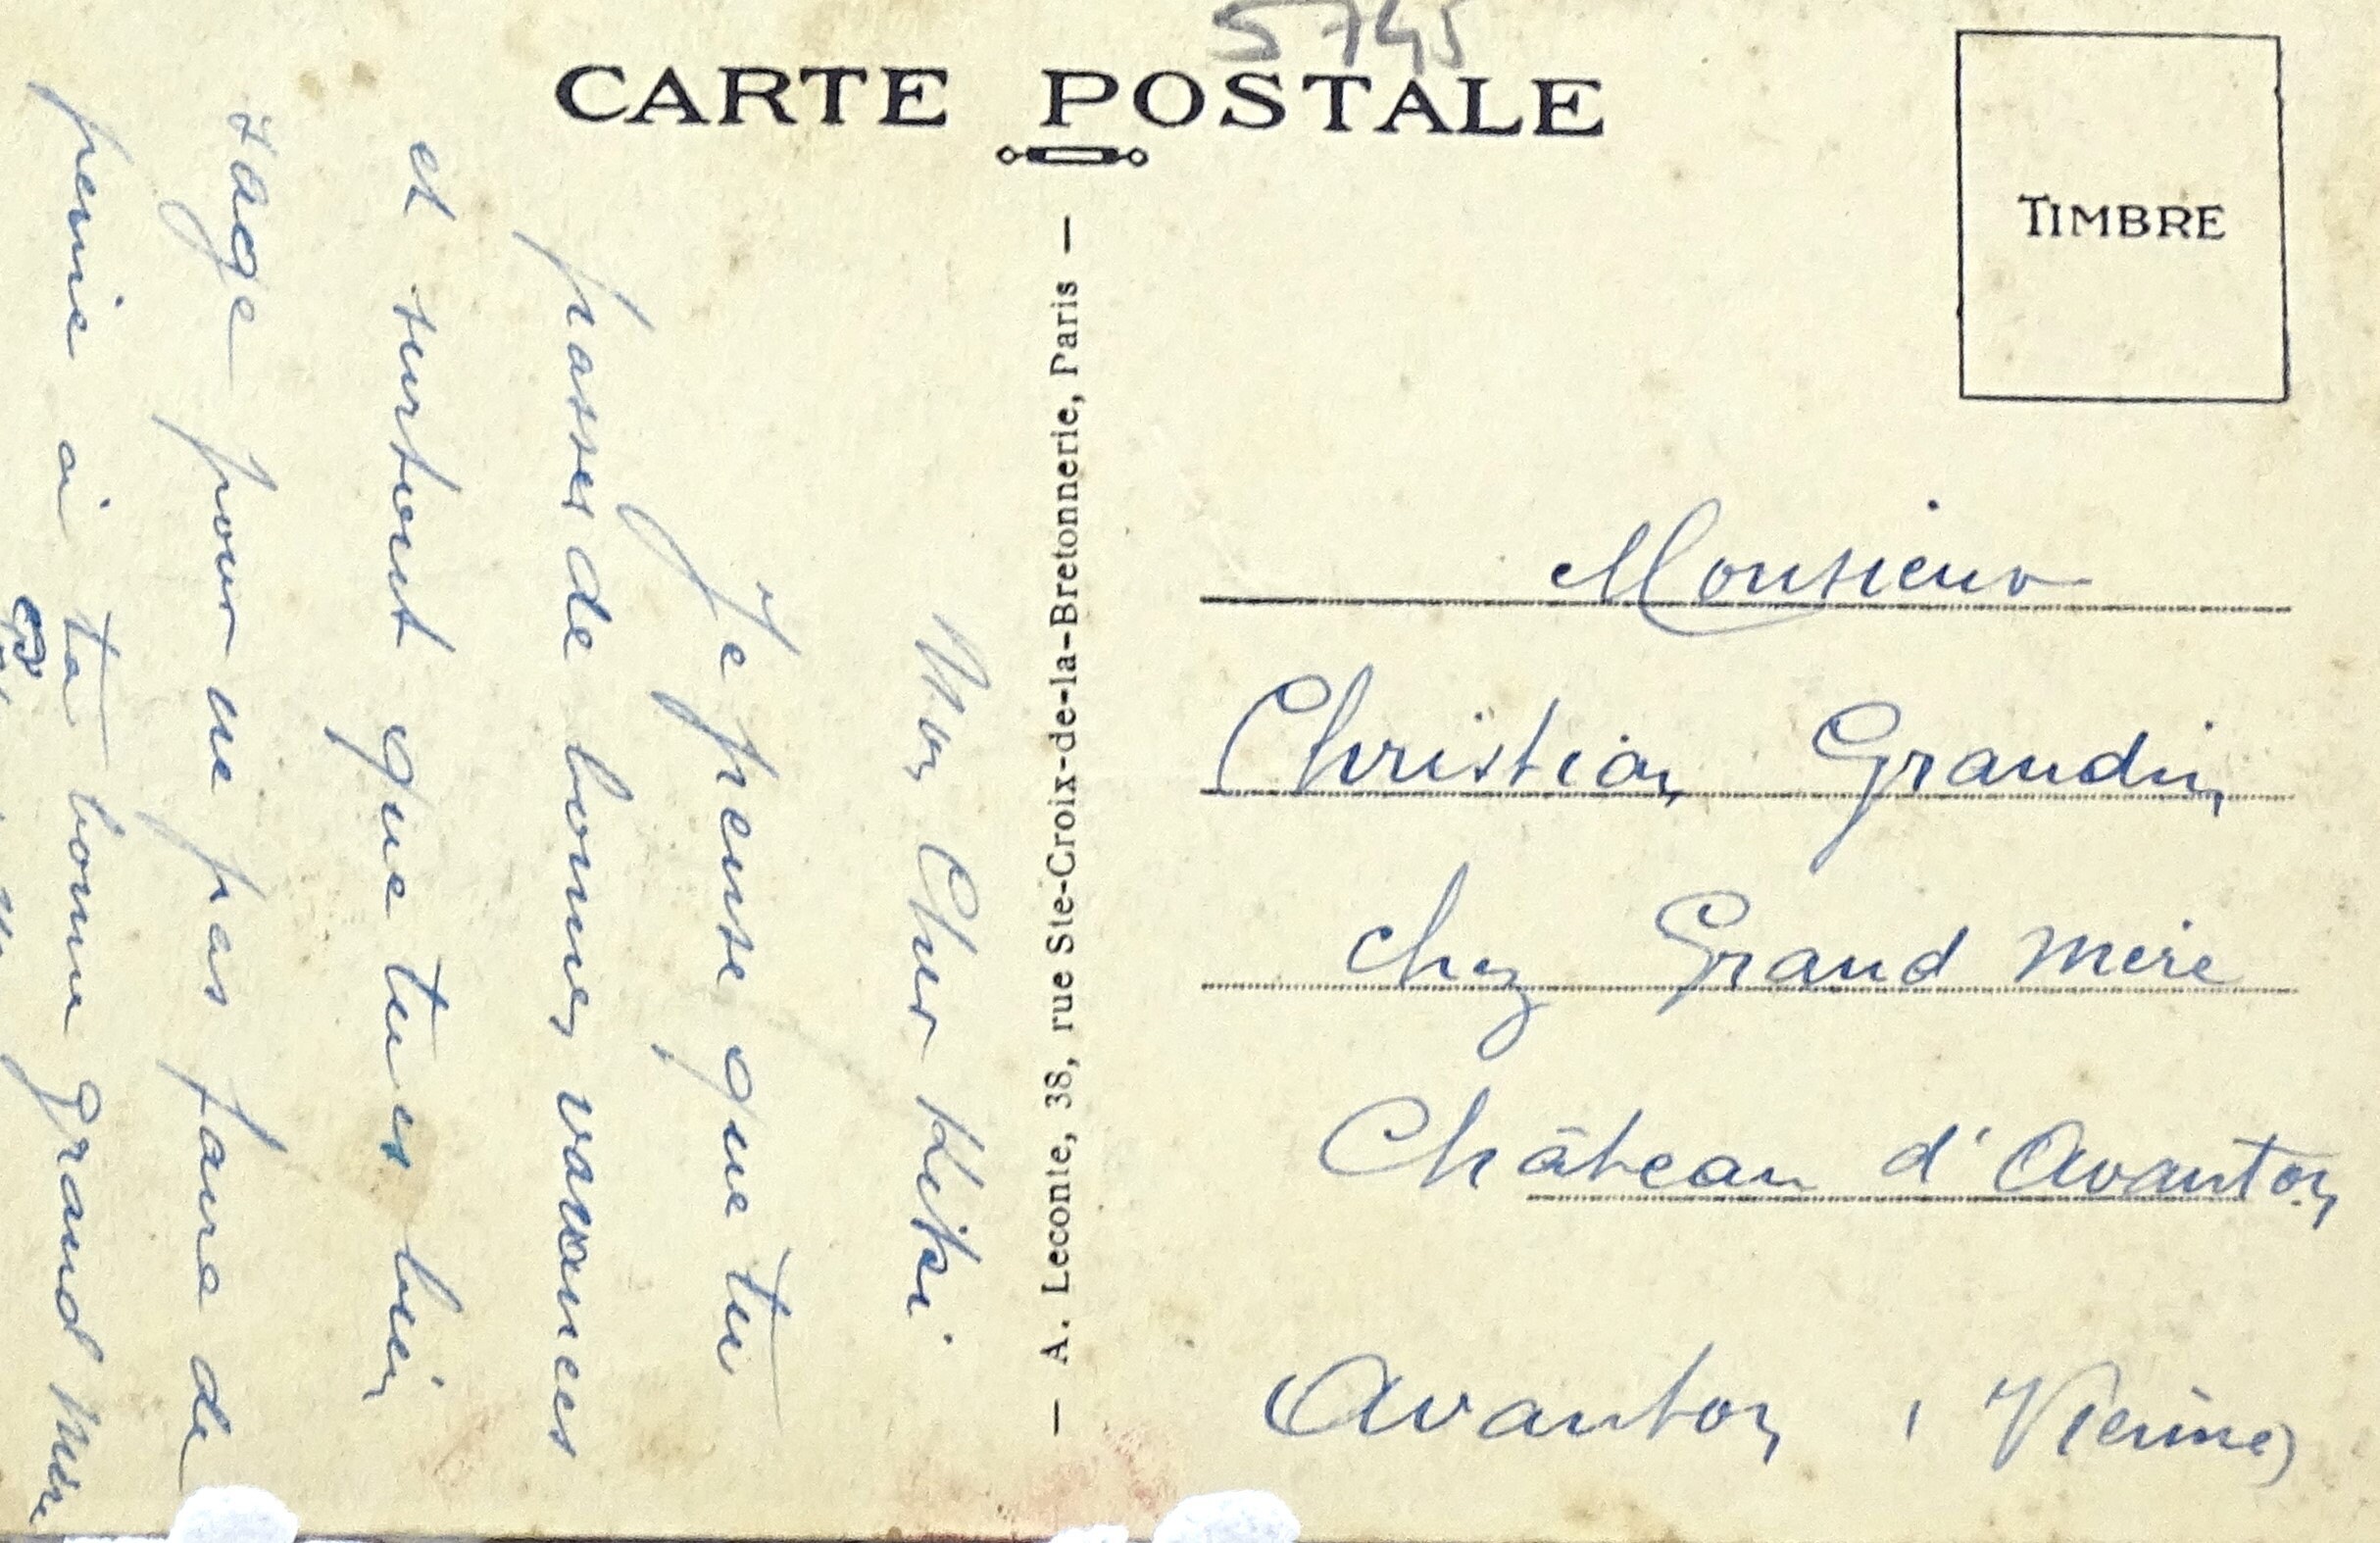 5745
CARTE POSTALE
TIMBRE
Mon Cher Kiki
Je pense que tu
passes de bonnes vacances
et surtout que tu es bien
sage pour ne pas faire de
peine à ta bonne grand Mère
— A. Leconte, 38, rue Ste-Croix-de-la-Bretonnerie, Paris —
Monsieur
Christian Grandin
chez Grand mère
Château d'Avanton
Avanton (Vienne)